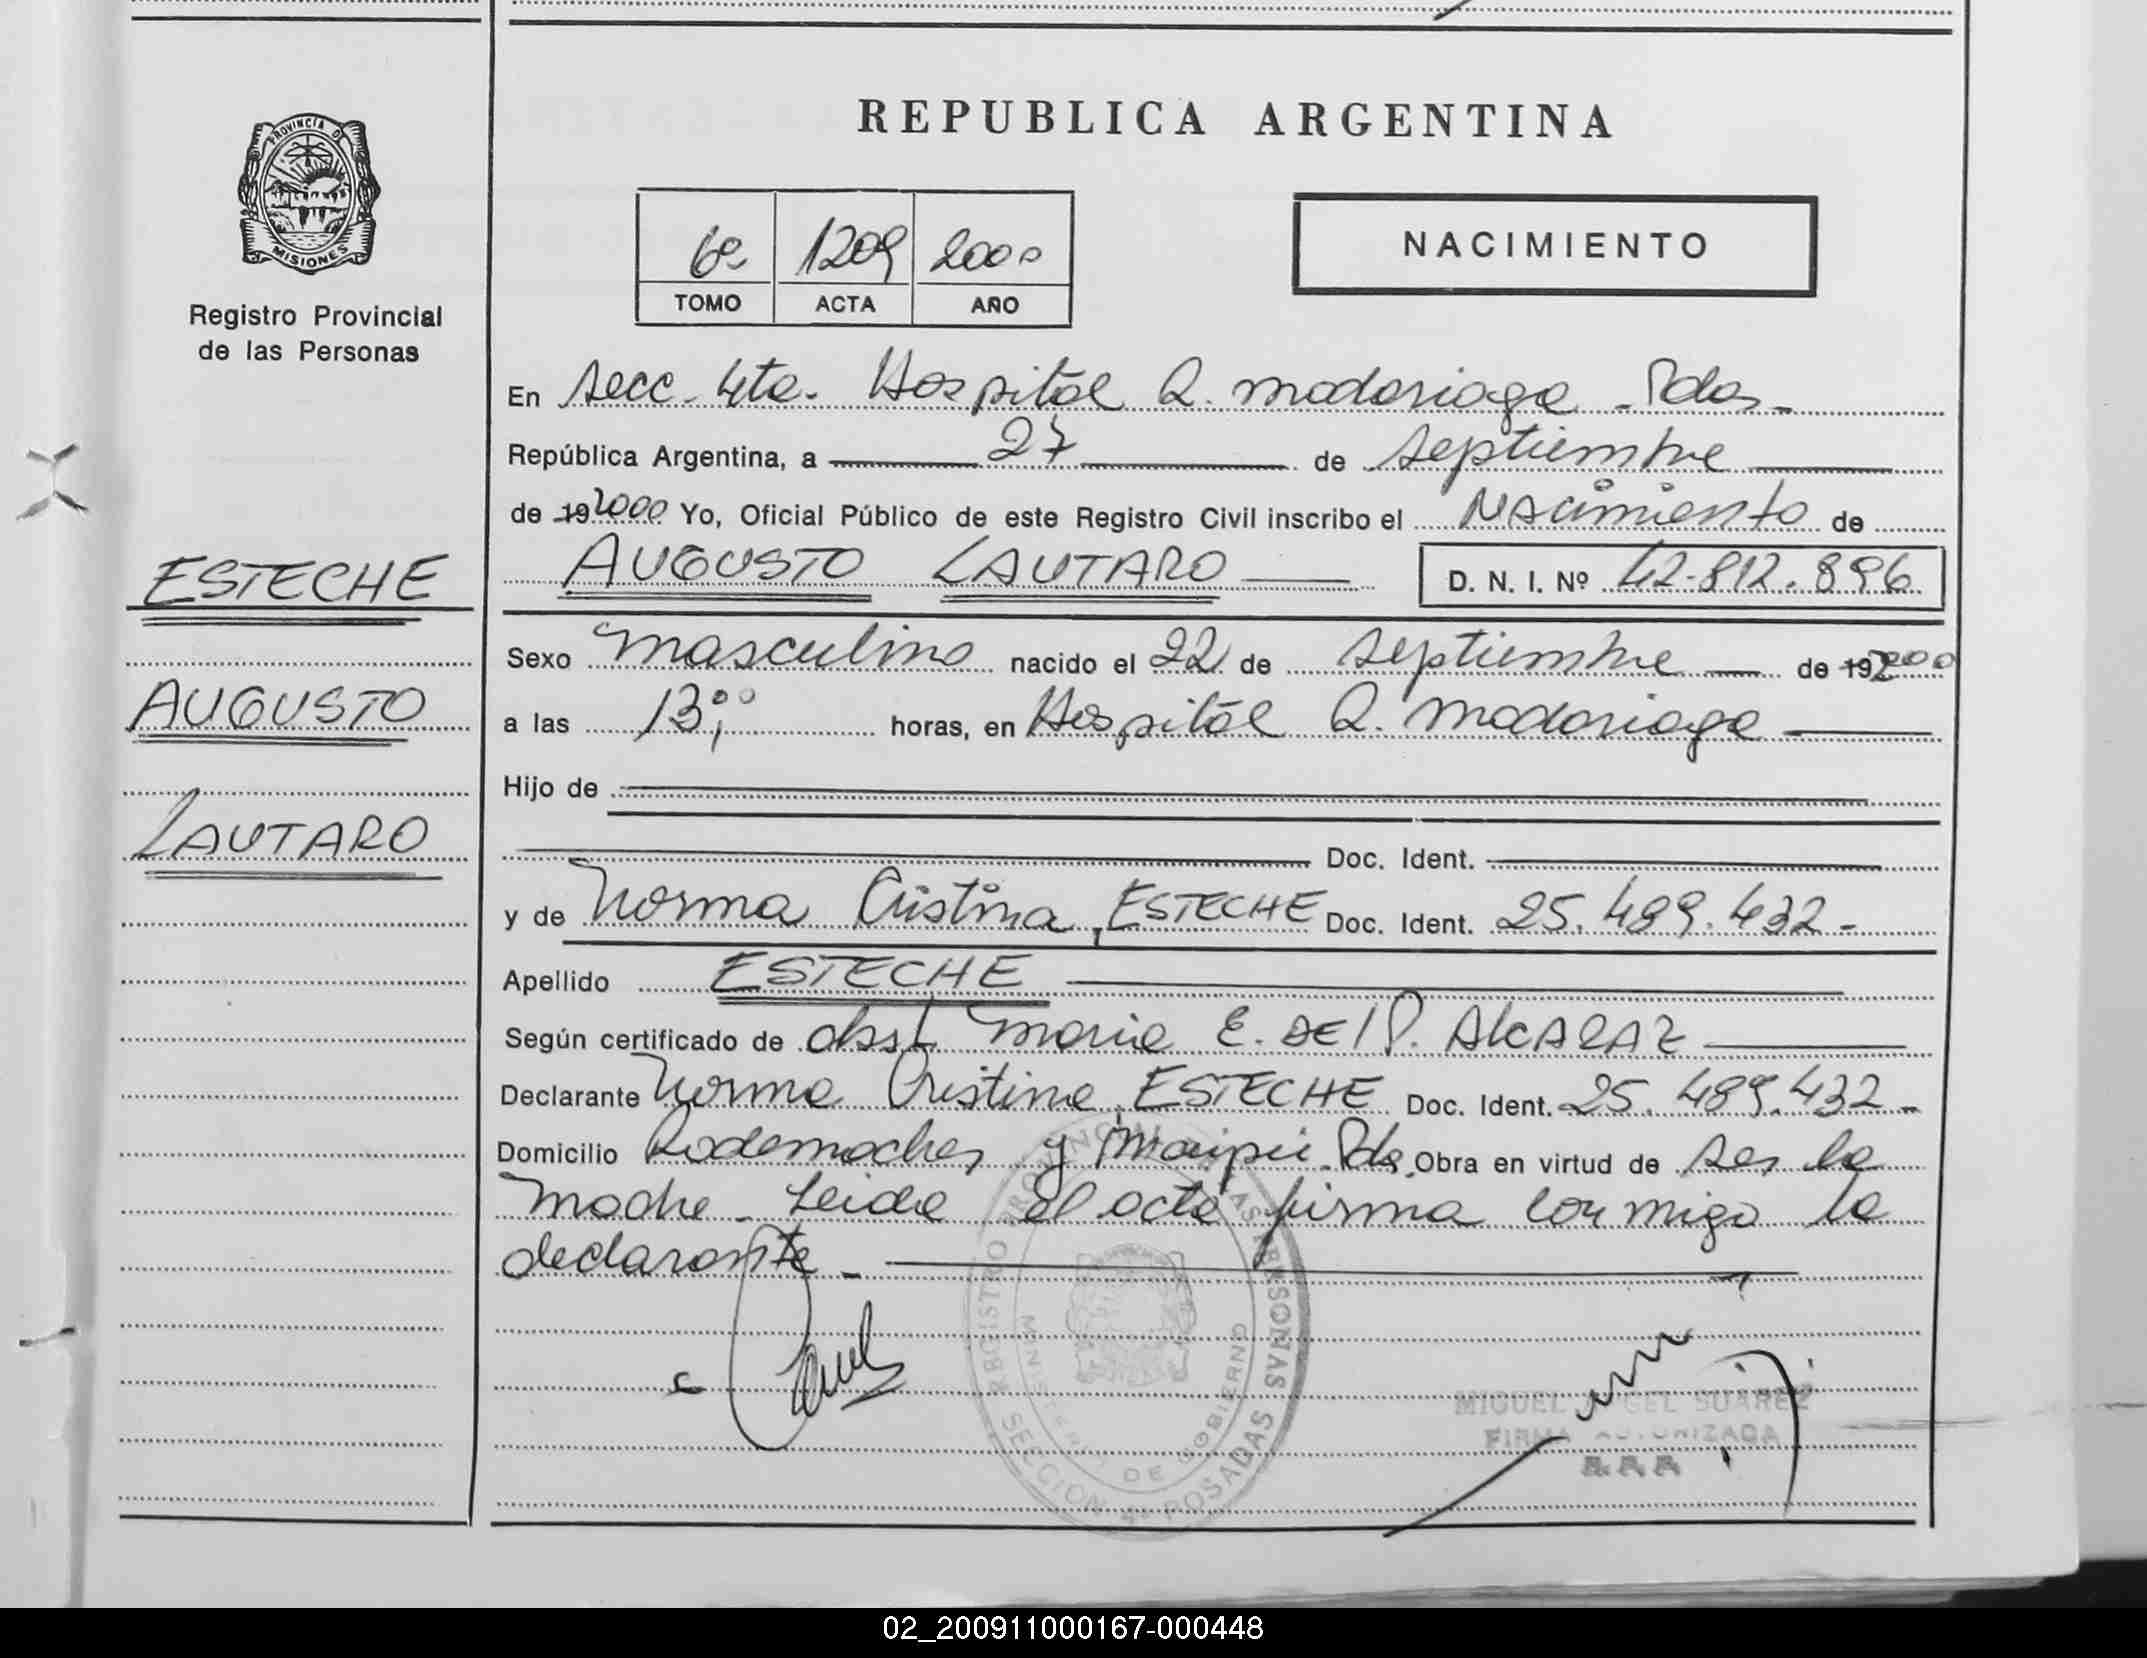 REPUBLICA ARGENTINA
PROVINCIA DE
MISIONES
Registro Provincial
de las Personas
6º 1209 2000
TOMO ACTA AÑO
NACIMIENTO
En Secc. 4ta. Hospital R. Madariaga - Pdas -
República Argentina, a 27 de Septiembre
de 19 2000 Yo, Oficial Público de este Registro Civil inscribo el Nacimiento de
AUGUSTO LAUTARO D. N. I. Nº 42.812.896
ESTECHE
AUGUSTO
LAUTARO
Sexo Masculino nacido el 22 de Septiembre de 19 2000
a las 13:00 horas, en Hospital R. Madariaga
Hijo de
Doc. Ident.
y de Norma Cristina, ESTECHE Doc. Ident. 25.489.432-
Apellido ESTECHE
Según certificado de obst. Maria E. DEl P. AlCARAZ
Declarante Norma Cristina, ESTECHE Doc. Ident. 25.489.432-
Domicilio Rademacher y Maipú. Pdas. Obra en virtud de ser la
Madre - Leida el acta firma conmigo la
declarante -
REGISTRO PROVINCIAL LAS PERSONAS
MINISTERIO DE GOBIERNO
SECCION 4ª POSADAS
MIGUEL ANGEL SUAREZ
FIRMA AUTORIZADA
02_200911000167-000448